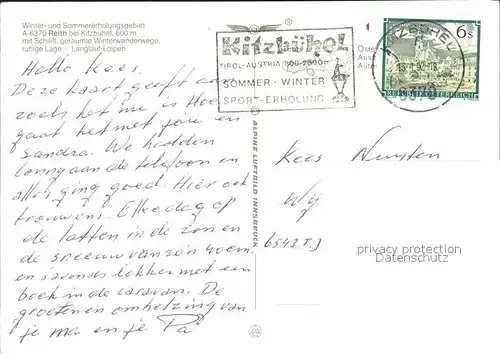 Winter- und Sommererholungsgebiet
A-6370 Reith bei Kitzbühel, 800 m
mit Schilift, geräumte Winterwanderwege,
ruhige Lage Langlauf-Loipen
Kitzbühel
TIROL-AUSTRIA 800-2000m
SOMMER · WINTER
SPORT-ERHOLUNG
KITZBÜHEL
6370
6s
REPUBLIK ÖSTERREICH
ALPINE LUFTBILD INNSBRUCK
Hallo Kees.
Deze kaart geeft aan
zoals het me is Hoe
gaat het met jou en
Sandra. We hadden
aan de telefoon en
alles ging goed. Hier ook
trouwens. Elke dag op
de latten in de zon en
de sneeuw van zo'n 40 cm,
en s'avonds lekker met een
boek in de caravan. De
groeten en omhelzing van
je ma en je Pa
Kees
6543
privacy protection
Datenschutz